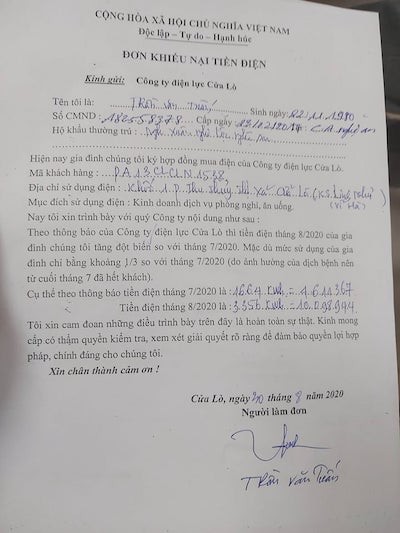 CỘNG HÒA XÃ HỘI CHỦ NGHĨA VIỆT NAM
Độc lập – Tự do – Hạnh húc
ĐƠN KHIẾU NẠI TIỀN ĐIỆN
Kính gửi: Công ty điện lực Cửa Lò
Tên tôi là: Trần Văn Tuấn Sinh ngày 02.11.1980
Số CMND 182558378 Cấp ngày CA Nghệ An
Hộ khẩu thường trú : Nghi Xuân Nghi Lộc Nghệ An
Hiện nay gia đình chúng tôi ký hợp đồng mua điện của Công ty điện lực Cửa Lò.
Mã khách hàng : PA13CLCLN1538,
Địa chỉ sử dụng điện : Khối 1. P. Thu Thuỷ thị xã Cửa Lò, (KS.
Mục đích sử dụng điện : Kinh doanh dịch vụ phòng nghỉ, ăn uống.
Nay tôi xin trình bày với quý Công ty nội dung như sau :
Theo thông báo của Công ty điện lực Cửa Lò thì tiền điện tháng 8/2020 của gia
đình chúng tôi tăng đột biến so với tháng 7/2020. Mặc dù mức sử dụng của gia
đình chỉ bằng khoảng 1/3 so với tháng 7/2020 (do ảnh hưởng của dịch bệnh nên
từ cuối tháng 7 đã hết khách).
Cụ thể theo thông báo tiền điện tháng 7/2020 là : 1664 kwh = 4.614367
Tiền điện tháng 8/2020 là : 3.356 kwh = 10.098.944
Tôi xin cam đoan những điều trình bày trên đây là hoàn toàn sự thật. Kính mong
cấp có thẩm quyền kiểm tra, xem xét giải quyết rõ ràng để đảm bảo quyền lợi hợp
pháp, chính đáng cho chúng tôi.
Xin chân thành cảm ơn !
Cửa Lò, ngày 30 tháng 8 năm 2020
Người làm đơn
Trần Văn Tuấn